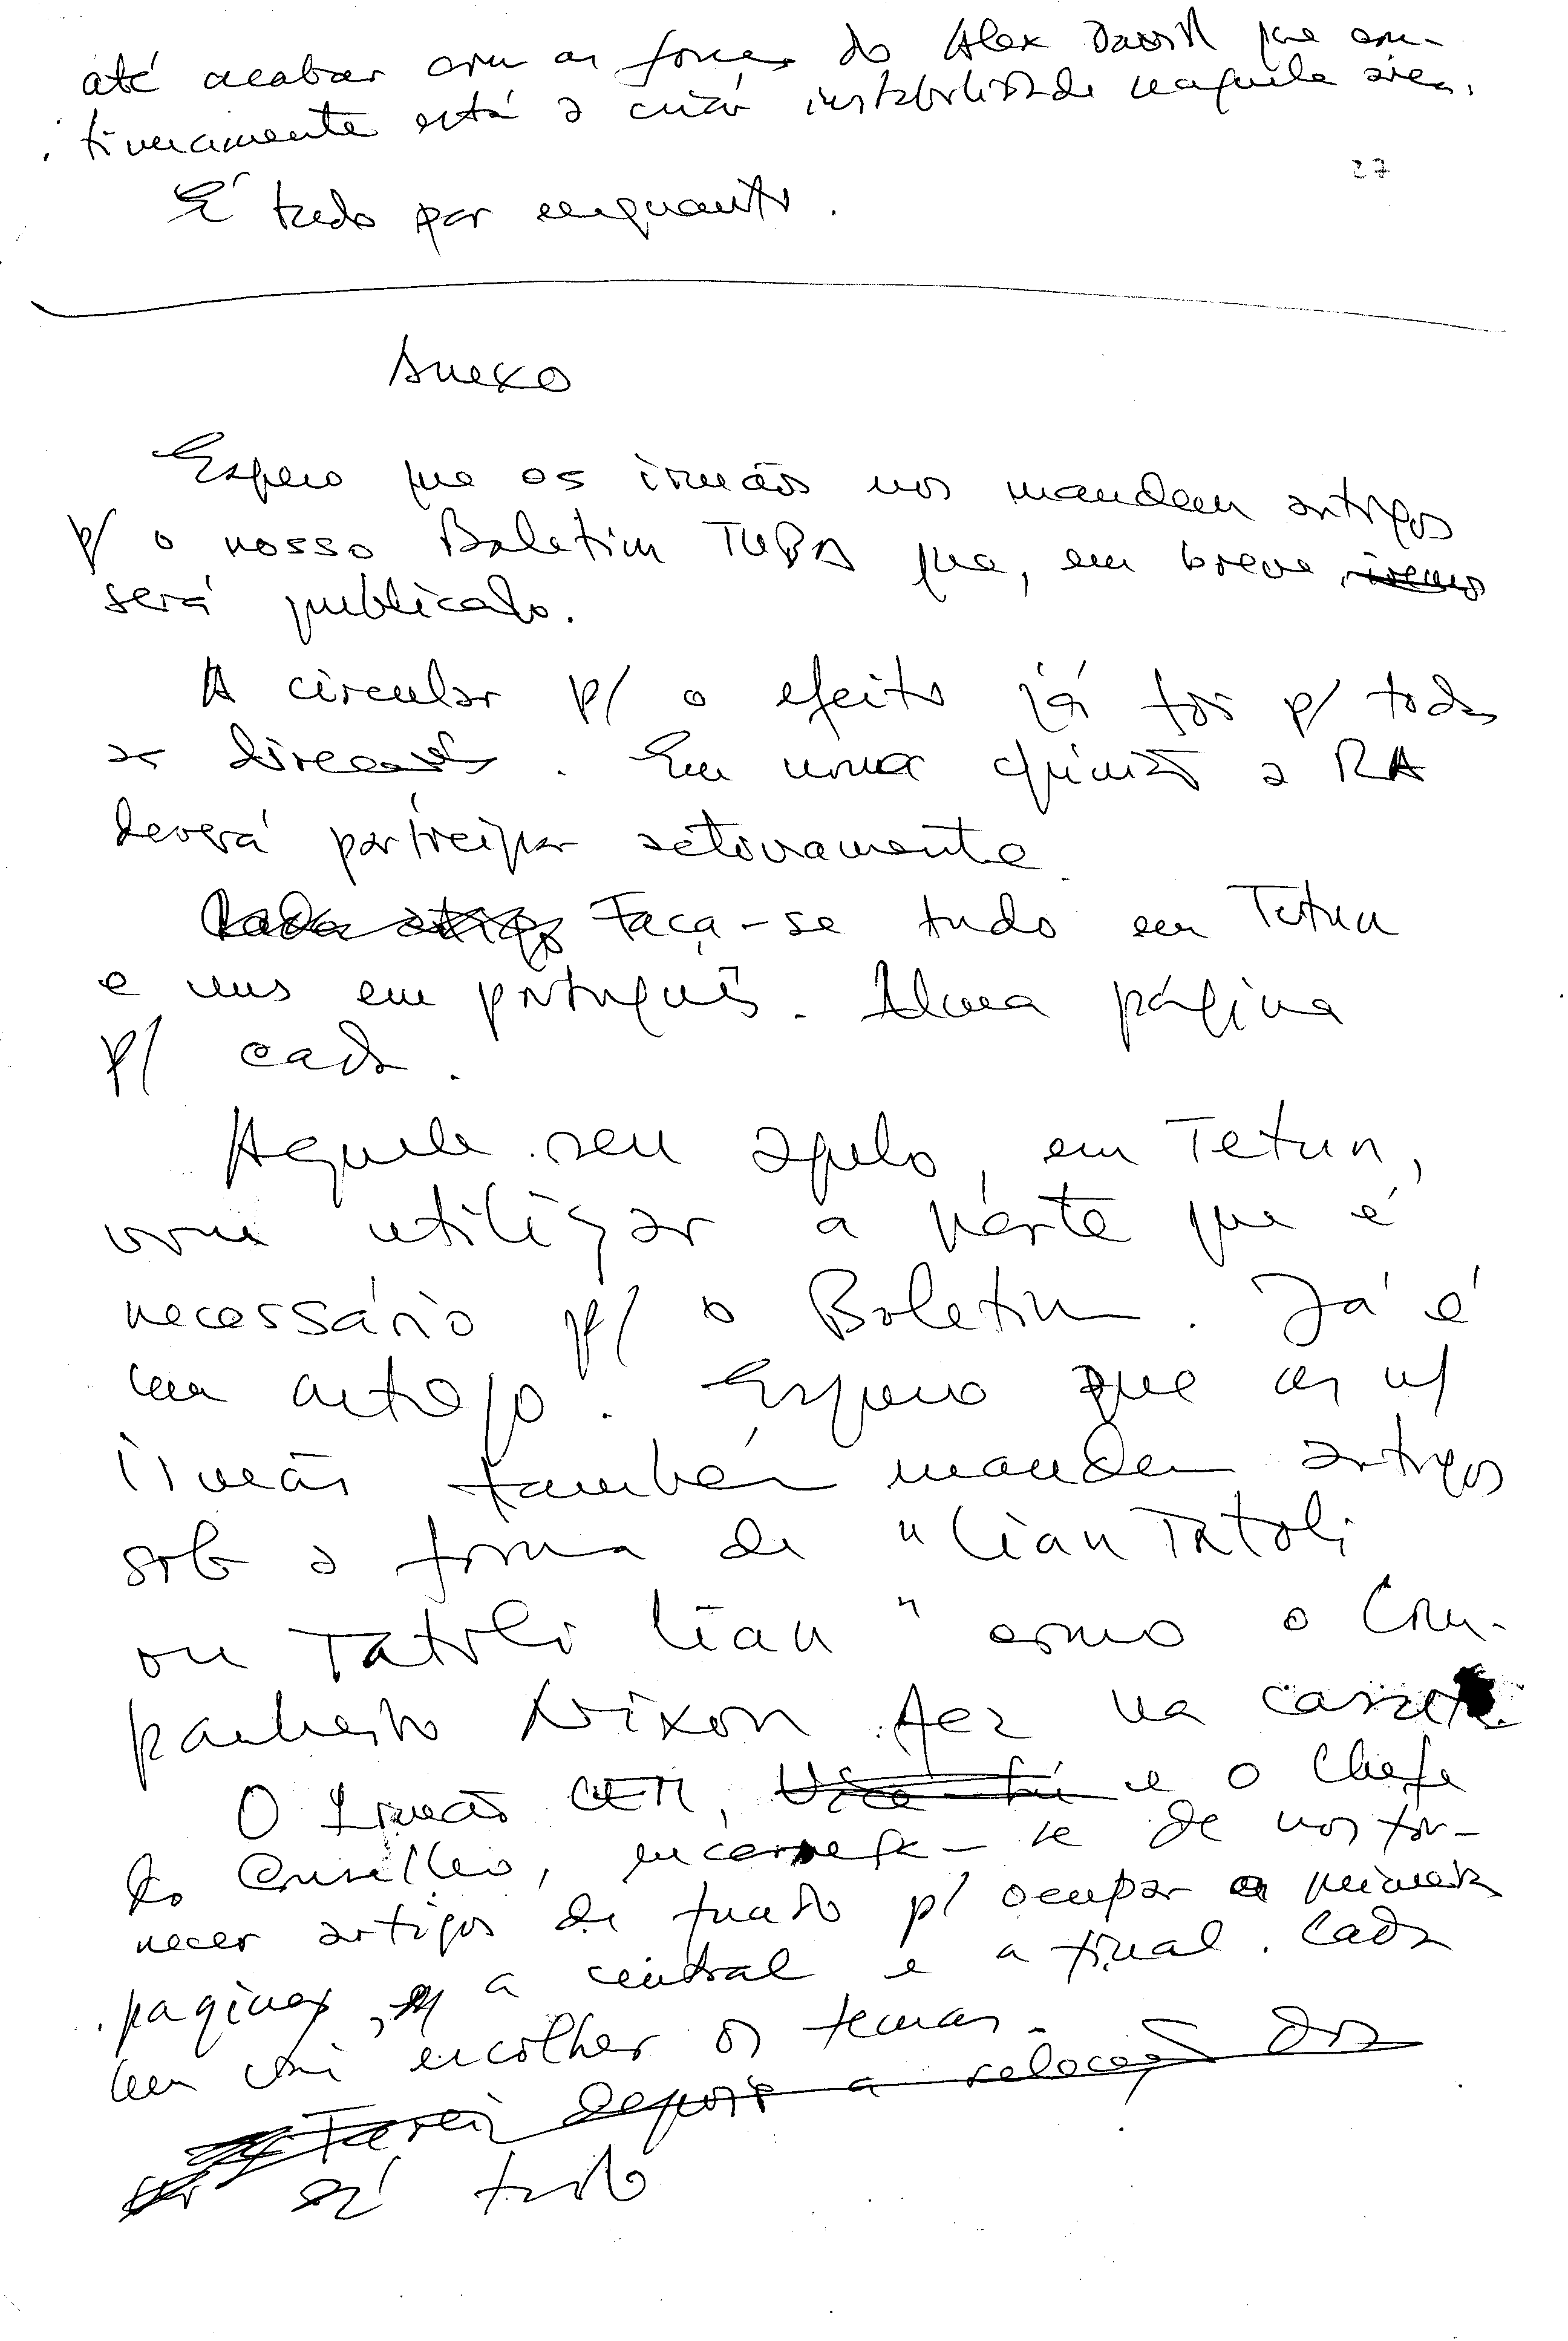 até acabar com as forças do Alex David que con-
tinuamente está a criar instabilidade naquela área.
27
É tudo por enquanto.
Anexo
Espero que os irmãos nos mandem artigos
p/ o nosso Boletim TUBA que, em breve, iremos
será publicado.
A circular p/ o efeito já foi p/ todas
as direcções. Em nossa opinião a RA
deverá participar activamente.
Cada artigo Faça-se tudo em Tetun
e uns em português. Uma página
p/ cada.
Aquele seu apelo, em Tetun,
vou utilizar a parte que é
necessário p/ o Boletim. Já é
um artigo. Espero que os n/
irmãos também mandem artigos
sob a forma de "Lian Tatoli
ou Tatoli Lian" como o Com-
panheiro Nixon fez na cassete.
O Irmão CEM, e o Chefe
do Conselho, encarrega-se de nos for-
necer artigos de fundo p/ ocupar a primeira
pagina, a central e a final. Cada
um vai escolher os temas.
Farei depois a relação dos
É tudo